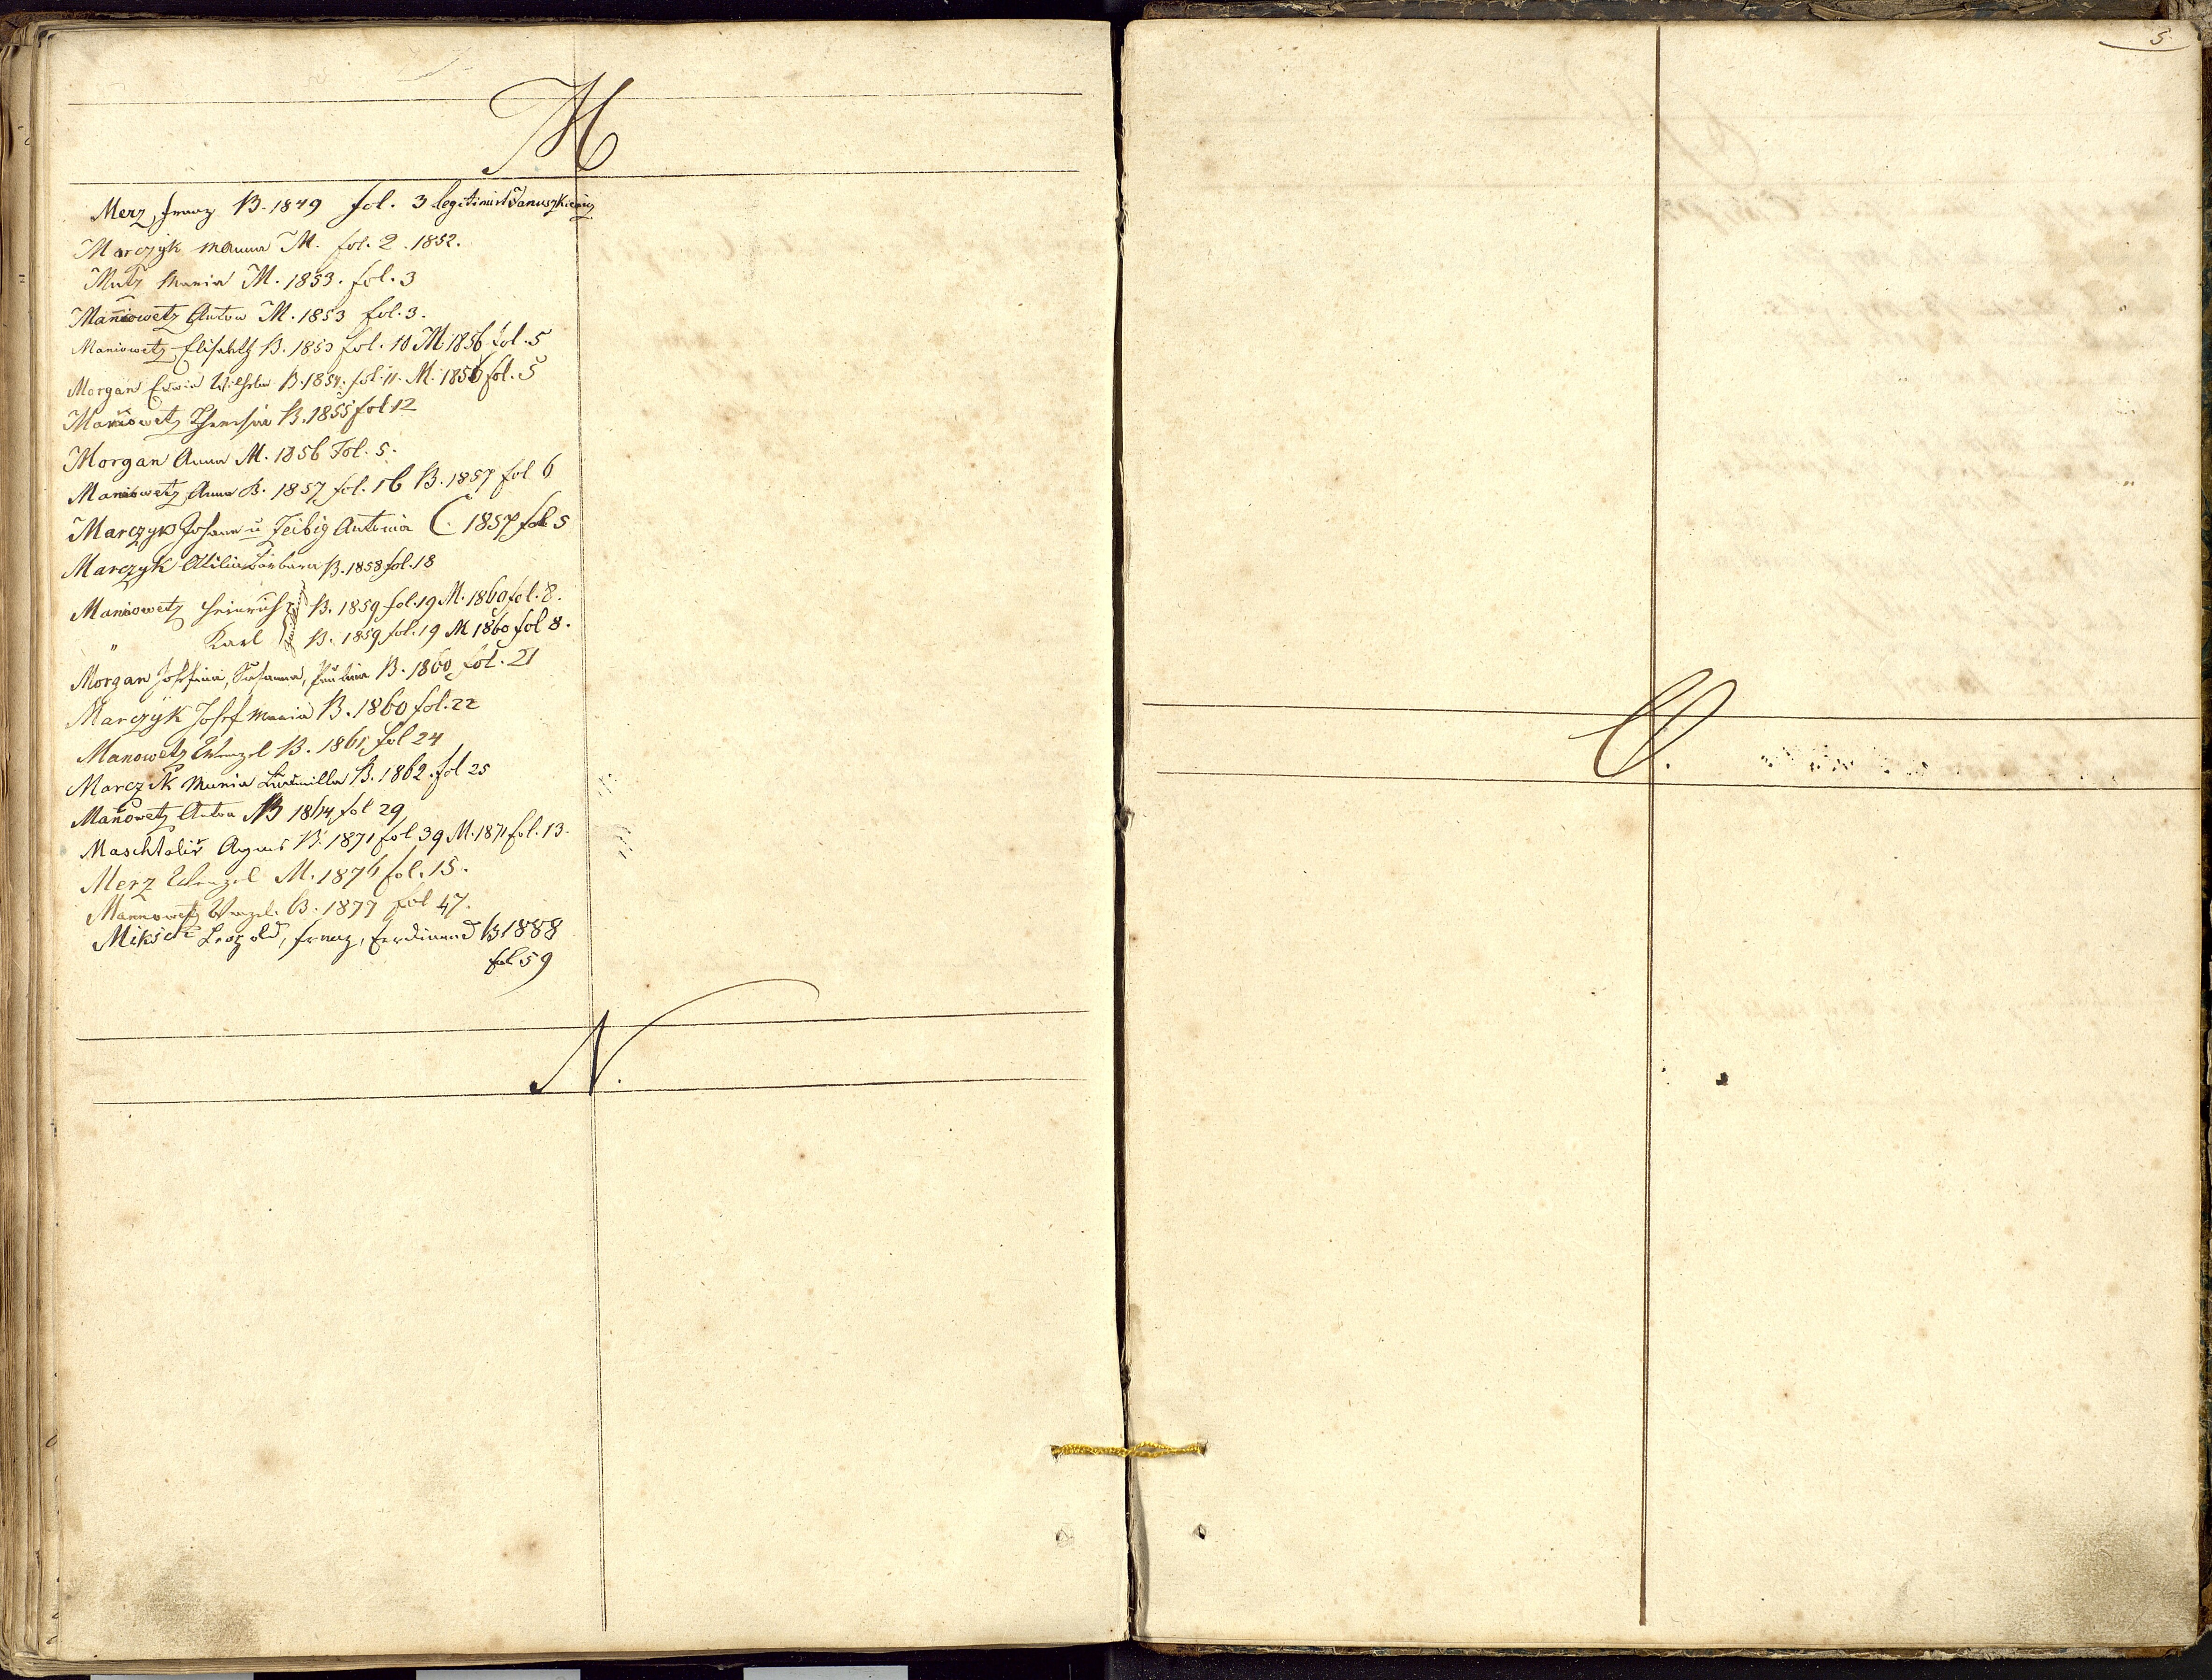 M
Merz, Franz B. 1849 fol. 3 legitimirt Januszkiewicz
Marczyk Marianna M. fol. 2. 1852.
Mutz Maria M. 1853. fol. 3
Maniowetz Anton M. 1853 fol. 3.
Maniowetz Elisabeth B. 1853 fol. 10 M. 1856 fol. 5
Morgan Erwin Wilhelm B. 1854. fol. 11. M. 1856 fol. 5
Maniowetz Theresia B. 1855 fol 12
Morgan Anna M. 1856 Fol. 5.
Maniowetz Anna B. 1857 fol. 16 B. 1857 fol 6
Marczyk Johann u Zeibig Antonia C. 1857 fol 5
Marczyk Barbara B. 1858 fol. 18
Maniowetz Heinrich B. 1859 fol. 19 M. 1860 fol. 8.
" Karl B. 1859 fol. 19 M 1860 fol 8.
Morgan Josefina, Susanna, Paulina B. 1860 fol. 21
Marczyk Josef Maria B. 1860 fol. 22
Manowetz Wenzel B. 1861 fol 24
Marczik Maria Ludmilla B. 1862. fol 25
Mañowetz Anton B 1864 fol 29
Maschtaliř Agnes B. 1871 fol 39 M. 1871 fol. 13.
Merz Wenzel M. 1876 fol. 15.
Mannowetz Wenzel. B. 1877 fol 47.
Miksch Leopold, Franz, Ferdinand B 1888
fol 59
N.
5
O.